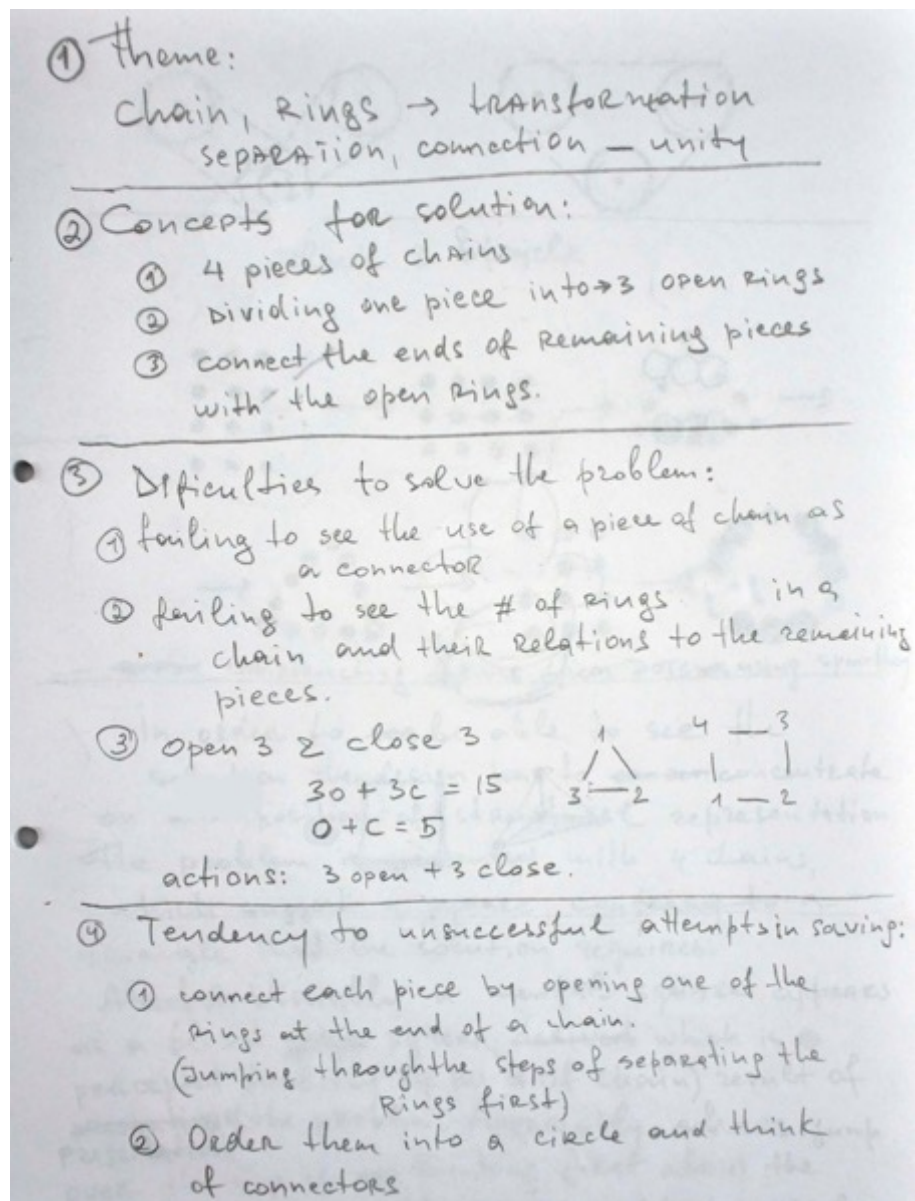 ① Theme:
Chain, Rings → transformation
separation, connection – unity
② Concepts for solution:
① 4 pieces of chains
② Dividing one piece into→3 open rings
③ connect the ends of remaining pieces
with the open rings.
③ Dificulties to solve the problem:
① failing to see the use of a piece of chain as
a connector
② failing to see the # of rings in a
chain and their relations to the remaining
pieces.
③ Open 3 & close 3
3o + 3c = 15
o + c = 5
1 4 3
3 2 1 2
actions: 3 open + 3 close.
④ Tendency to unsuccessful attempts in saving:
① connect each piece by opening one of the
rings at the end of a chain.
(Jumping through the steps of separating the
Rings first)
② Order them into a circle and think
of connectors